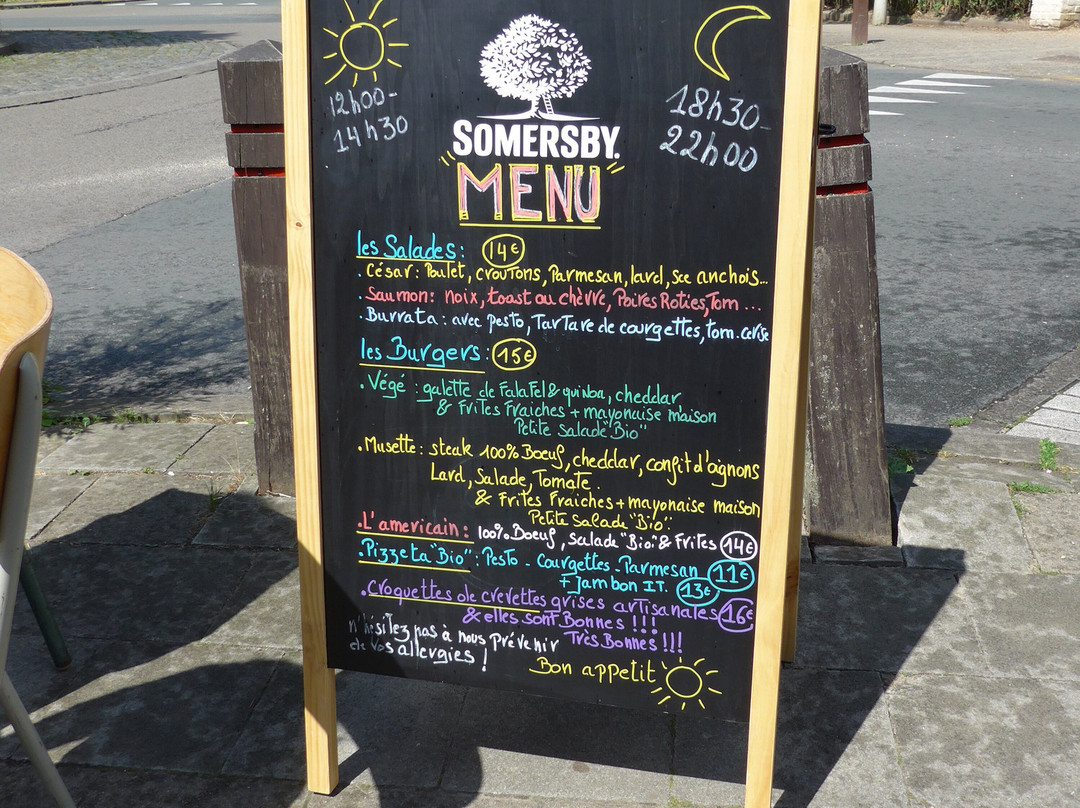 12h00-
14h30
18h30-
22h00
SOMERSBY.
MENU
les Salades: 14€
. César: Poulet, croutons, Parmesan, lard, sce anchois...
. Saumon: noix, toast au chèvre, Poires Roties, Tom...
. Burrata: avec pesto, Tartare de courgettes, tom. cerise
les Burgers: 15€
. Végé: galette de Falafel & quinoa, cheddar
& Frites Fraiches + mayonaise maison
Petite Salade "Bio"
. Musette: steak 100% Boeuf, cheddar, confit d'oignons
Lard, Salade, Tomate.
& Frites Fraiches + mayonaise maison
Petite Salade "Bio".
. L'americain: 100% Boeuf, Salade "Bio" & Frites 14€
. Pizzeta "Bio": Pesto - Courgettes - Parmesan 11€
+ Jambon IT. 13€
. Croquettes de crevettes grises artisanales 16€
& elles sont Bonnes !!!
Très Bonnes !!!
n'hésitez pas à nous prévenir
de vos allergies !
Bon appetit